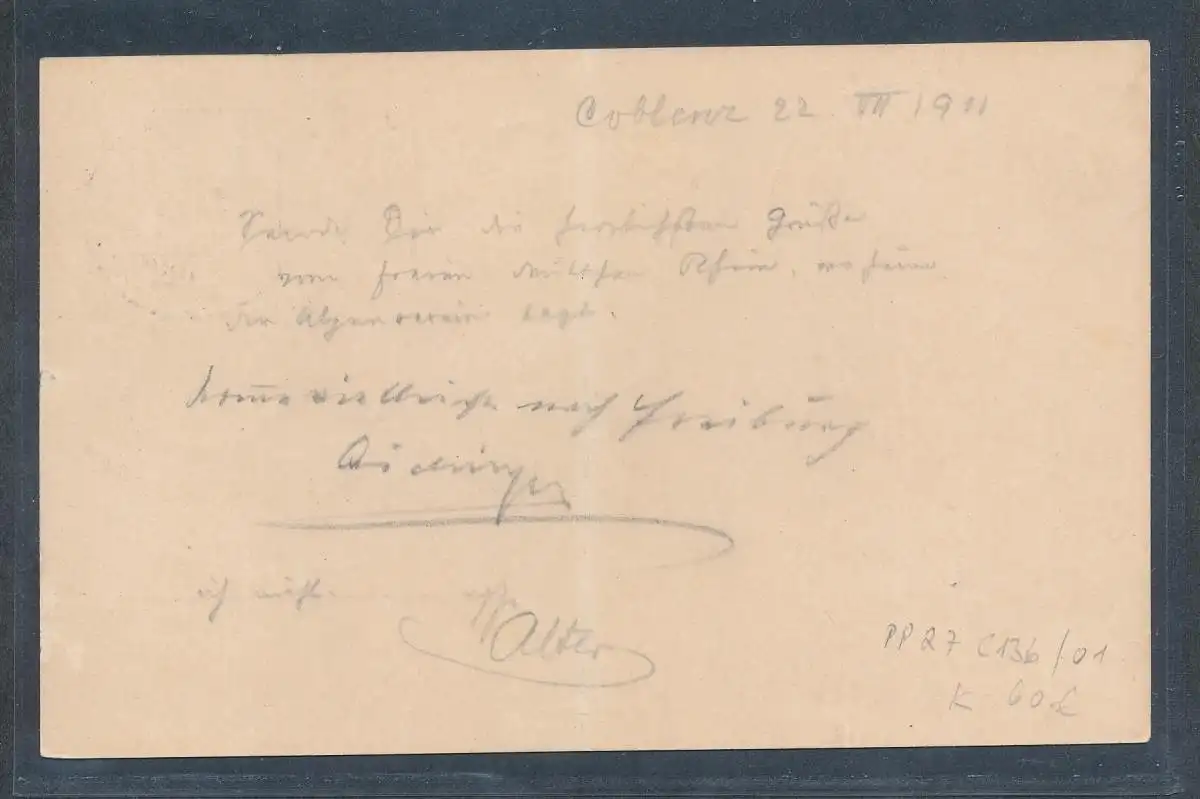 Coblenz 22. VII 1911
Sende Dir die herzlichsten Grüße
vom freien deutschen Rhein, wo heuer
der Alpenverein tagt.
komme vielleicht nach Freiburg
ich nicht
Alter
PP 27 C136/01
K 60 €